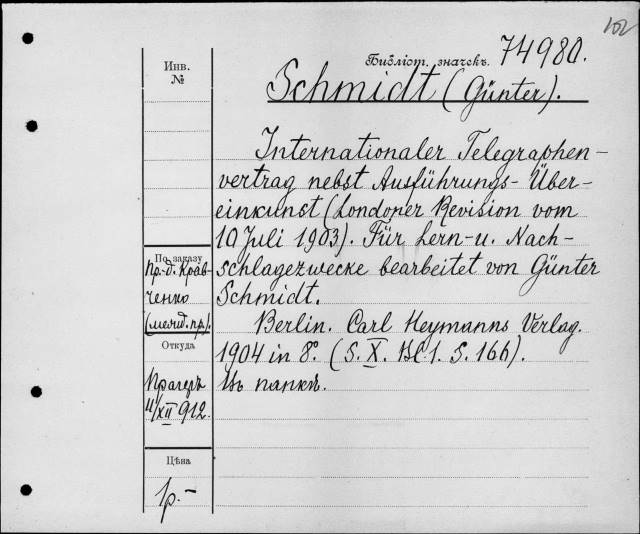 102
Библіот. значекъ. 74980.
Инв.
№
Schmidt (Günter).
Internationaler Telegraphen-
vertrag nebst Ausführungs-Über-
einkunst (Londoner Revision vom
10 Juli 1903). Für Lern-u. Nach-
schlagezwecke bearbeitet von Günter
Schmidt.
Berlin. Carl Heymanns Verlag.
1904 in 8°. (S. X. Bl. 1. S. 166).
Въ папкѣ.
По заказу
пр.-д. Крав-
ченко
Откуда
Прагеръ
11/XII 912.
Цѣна
1р.-